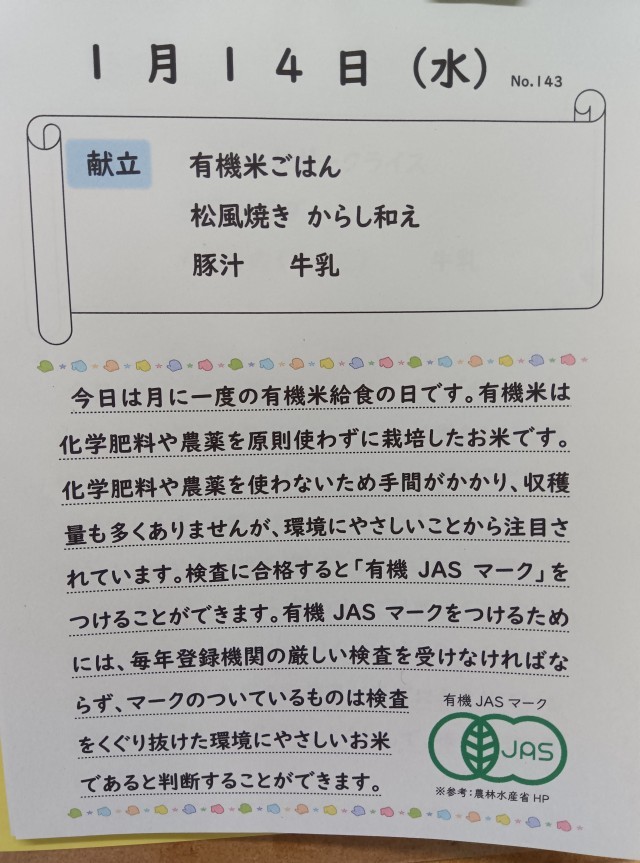 1月14日（水） No.143
献立 有機米ごはん
松風焼き からし和え
豚汁 牛乳
今日は月に一度の有機米給食の日です。有機米は
化学肥料や農薬を原則使わずに栽培したお米です。
化学肥料や農薬を使わないため手間がかかり、収穫
量も多くありませんが、環境にやさしいことから注目さ
れています。検査に合格すると「有機 JAS マーク」を
つけることができます。有機 JAS マークをつけるため
には、毎年登録機関の厳しい検査を受けなければな
らず、マークのついているものは検査
をくぐり抜けた環境にやさしいお米
であると判断することができます。
有機 JAS マーク
JAS
※参考：農林水産省 HP